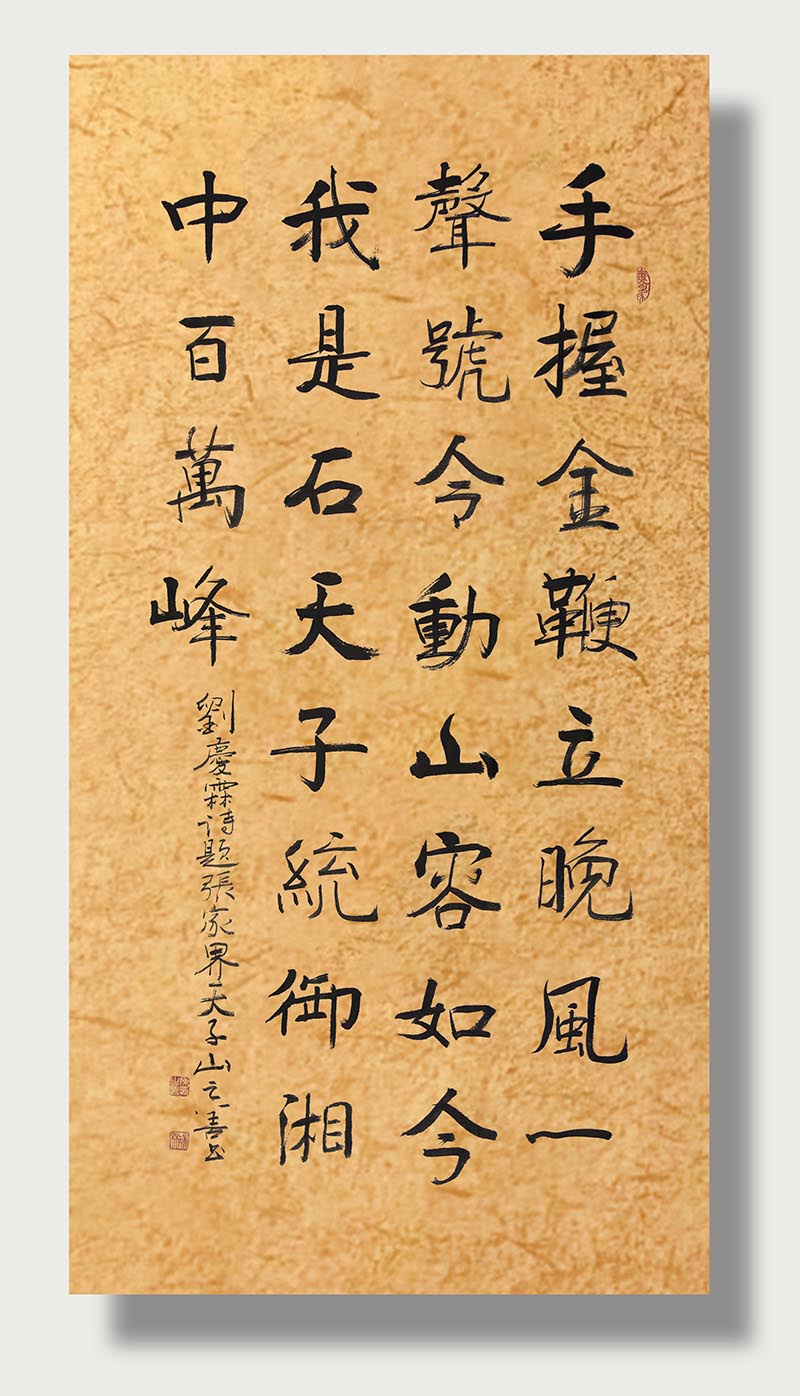 手握金鞭立晚風一
聲號令動山容如今
我是石天子統御湘
中百萬峰
劉慶霖詩題張家界天子山之善书